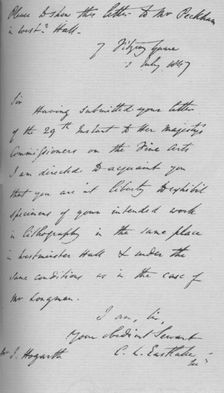 Please to show this letter to Mr Peckham
in West.r Hall.
7 Fitzroy Square
3 July 1847
Sir
Having submitted your letter
of the 29th Instant to Her Majesty's
Commissioners on the Fine Arts
I am directed to acquaint you
that you are at liberty to exhibit
specimens of your intended work
in Lithography in the same place
in Westminster Hall & under the
same conditions as in the case of
Mr Longman.
I am, Sir,
Your obedient Servant
C. L. Eastlake
Mr J. Hogarth